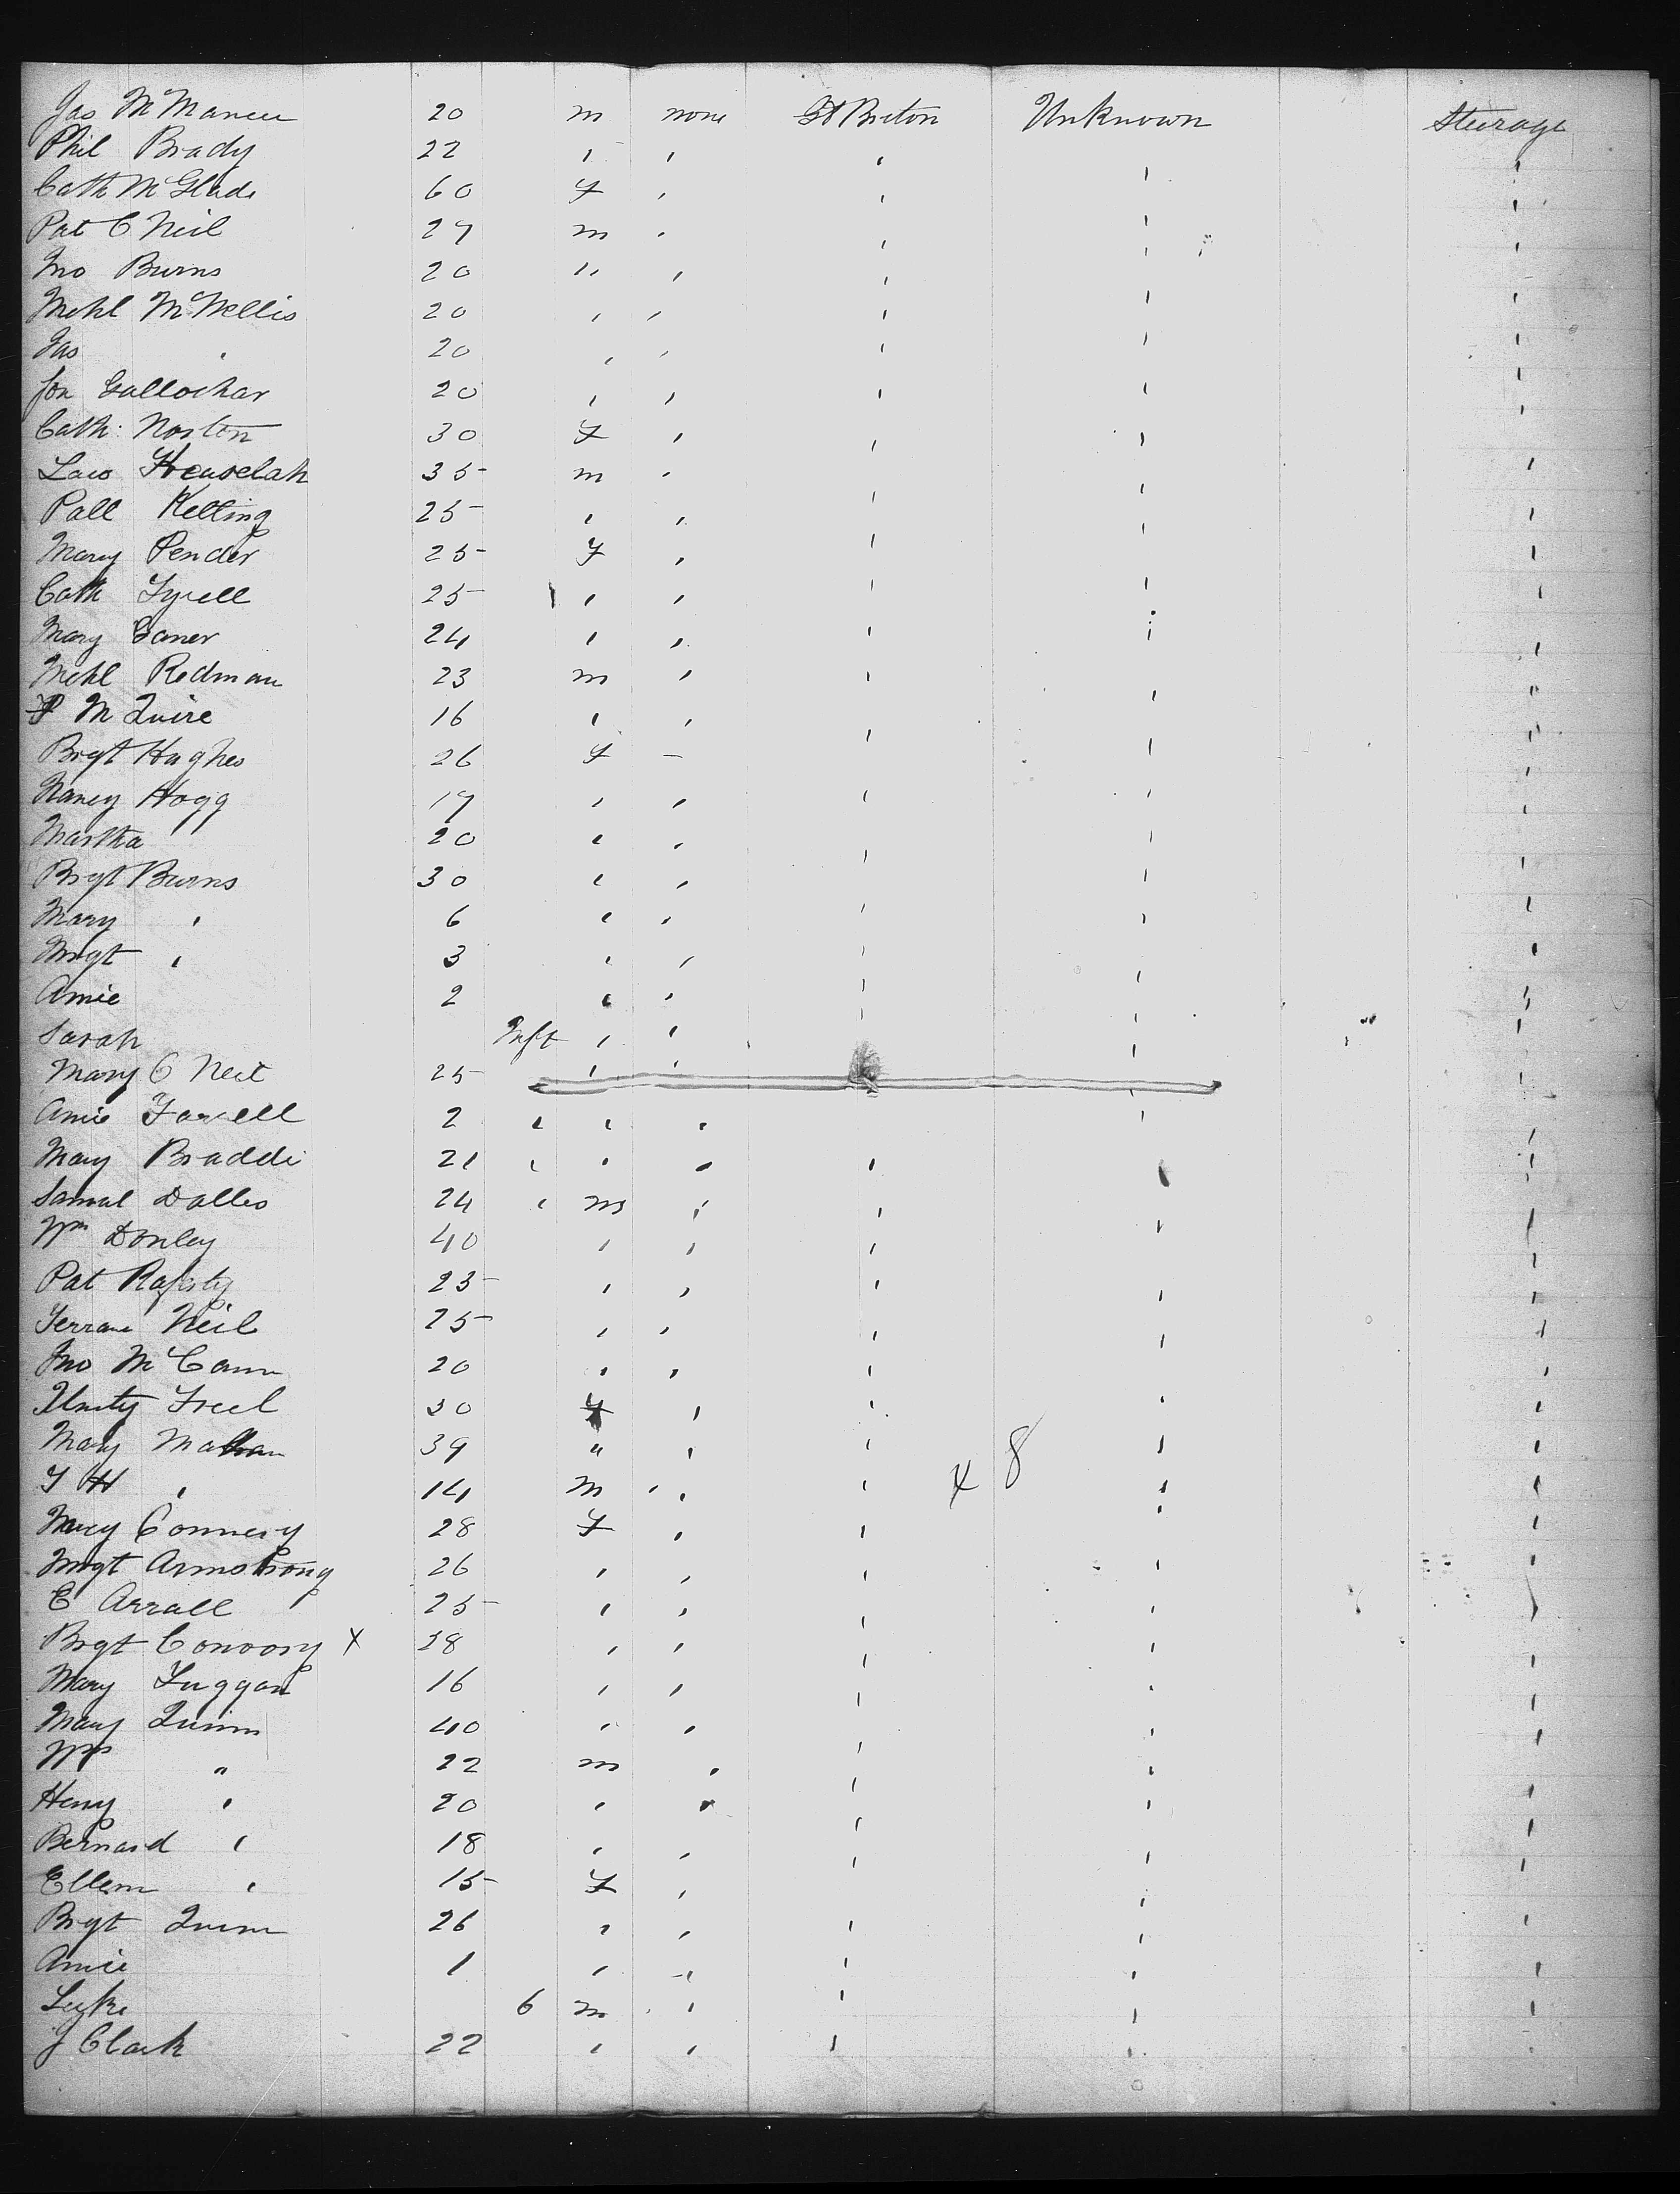 Jas McManeu 20 m none Gt Breton Unknown Steerage
Phil Brady 22 , , , , ,
Cath McGlade 60 F , , , ,
Pat O Neil 27 m , , , ,
Jno Burns 20 " , , , ,
Mchl McNellis 20 , , , , ,
Jas , 20 , , , , ,
Jon Gallochar 20 , , , , ,
Cath: Norten 30 F , , ,
Law 35 m , , , ,
Pall Kelting 25 , , , , ,
Mary Pender 25 F , , , ,
Cath Tyrell 25 , , , , ,
Mary Ganer 24 , , , , ,
Mchl Redman 23 m , , , ,
P McQuire 16 , , , , ,
Brgt Hughes 26 F - , , ,
Nancy Hogg 19 , , , , ,
Martha 20 , , , ,
Brgt Burns 30 , , , , ,
Mary , 6 , , , , ,
Mrgt , 3 , , , , ,
Annie 2 , , , , ,
Sarah Inft , , , , ,
Mary O Neil 25 , , , ,
Annie Farrell 2 , , , , ,
Mary Braddi 21 , , , , , ,
Samul Dalles 24 , m , , , ,
Wm Donley 40 , , , ,
Pat Rafirty 25 , , , , ,
Terrane Neil 25 , , , , ,
Jno McCann 20 , , , ,
Unity Freel 30 F , , , ,
Mary 39 " , , , ,
J H , 14 m , , , x 8 , ,
Mary Connery 28 F , , , ,
Mrgt Armstrong 26 , , , , ,
E Arrall 25 , , , , ,
Brgt Convory x 28 , , , , ,
Mary Luggan 16 , , , , ,
Mary Quinn 40 , , , , ,
Wm " 22 m , , , ,
Heny , 20 , , , , ,
Bernard , 18 , , , , ,
Ellern , 15 F , , ,
Brgt Quinn 26 , , , , ,
Annie 1 , , , , ,
Luke 6 m , , , ,
J Clark 22 , , , , ,